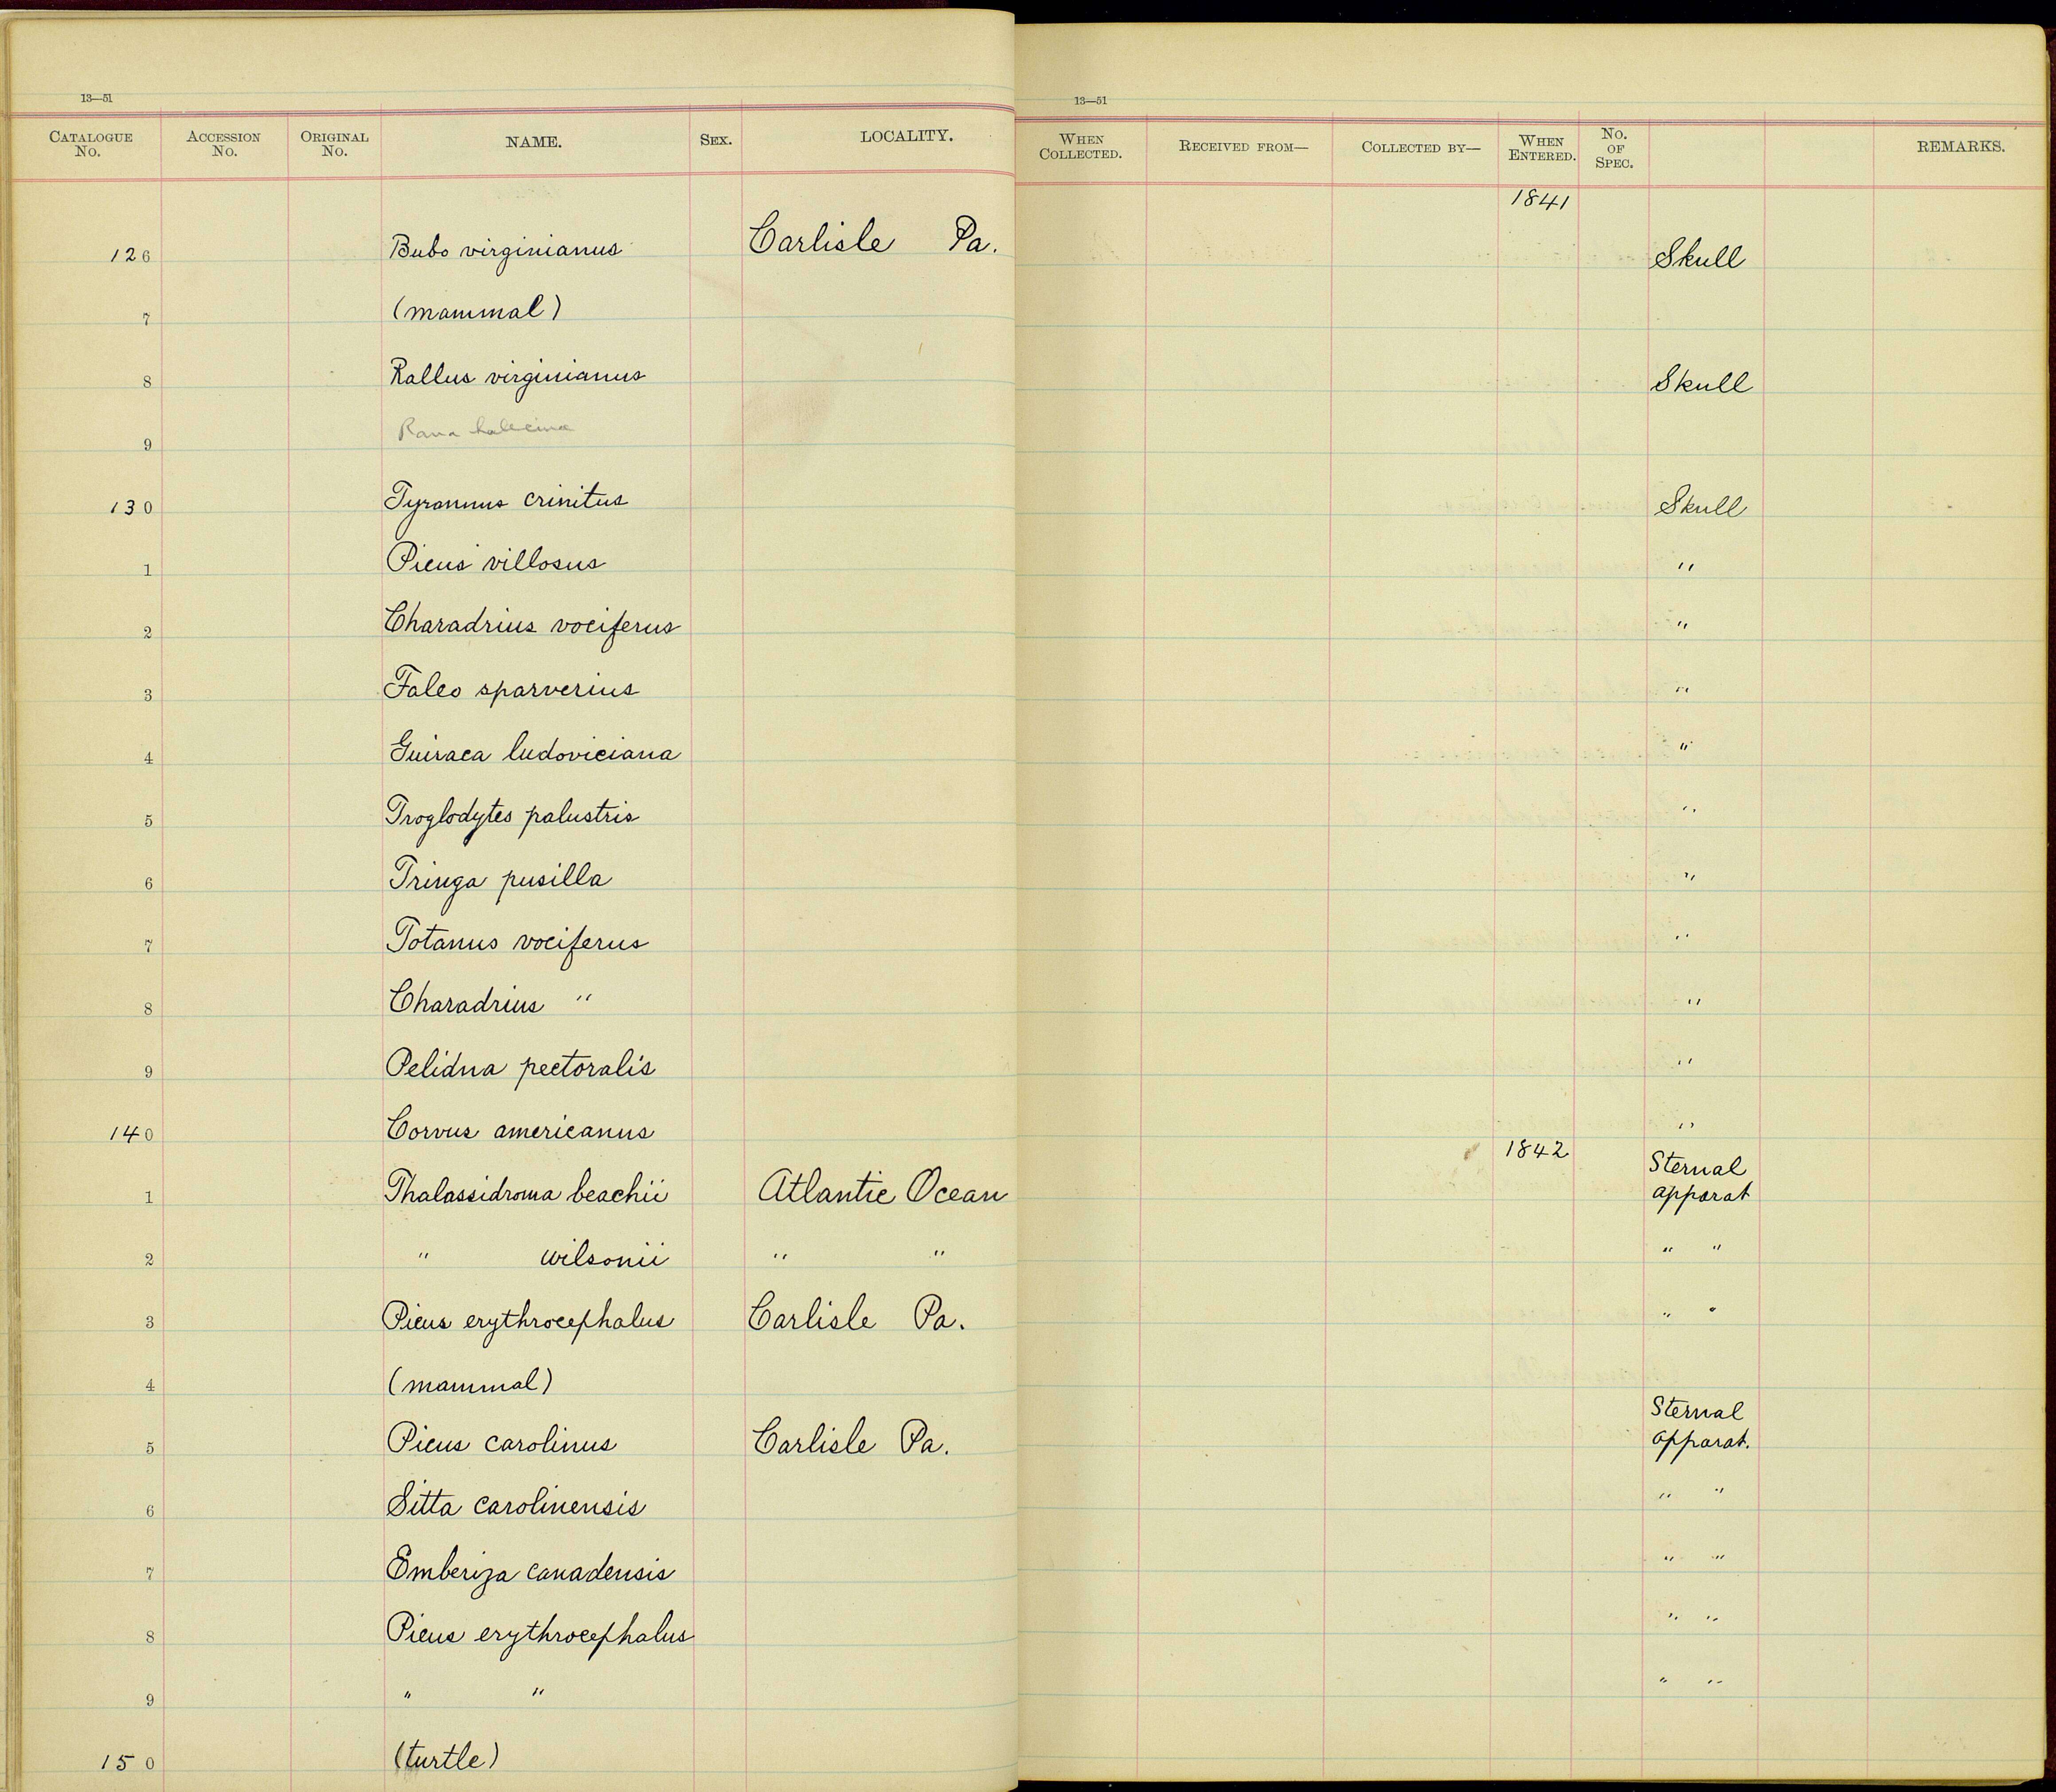 13—51
CATALOGUE No. ACCESSION No. ORIGINAL No. NAME. SEX. LOCALITY.
13—51
WHEN COLLECTED. RECEIVED FROM— COLLECTED BY— WHEN ENTERED. No. OF SPEC. REMARKS.
1841
126 Bubo virginianus Carlisle Pa. Skull
7 (mammal)
8 Rallus virginianus Skull
9 Rana halecina
130 Tyrannus crinitus Skull
1 Picus villosus "
2 Charadrius vociferus "
3 Falco sparverius "
4 Guiraca ludoviciana "
5 Troglodytes palustris "
6 Tringa pusilla "
7 Totanus vociferus "
8 Charadrius " "
9 Pelidna pectoralis "
140 Corvus americanus "
1842
1 Thalassidroma beachii Atlantic Ocean Sternal apparat
2 " wilsonii " " " "
3 Picus erythrocephalus Carlisle Pa. " "
4 (mammal)
5 Picus carolinus Carlisle Pa. Sternal apparat.
6 Sitta carolinensis " "
7 Emberiza canadensis " "
8 Picus erythrocephalus " "
9 " " " "
150 (turtle)